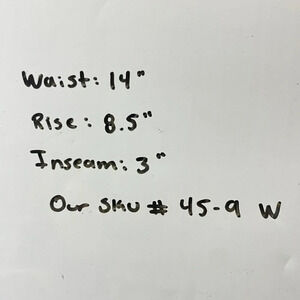 Waist: 14"
Rise: 8.5"
Inseam: 3"
Our SKU # 45-9 W